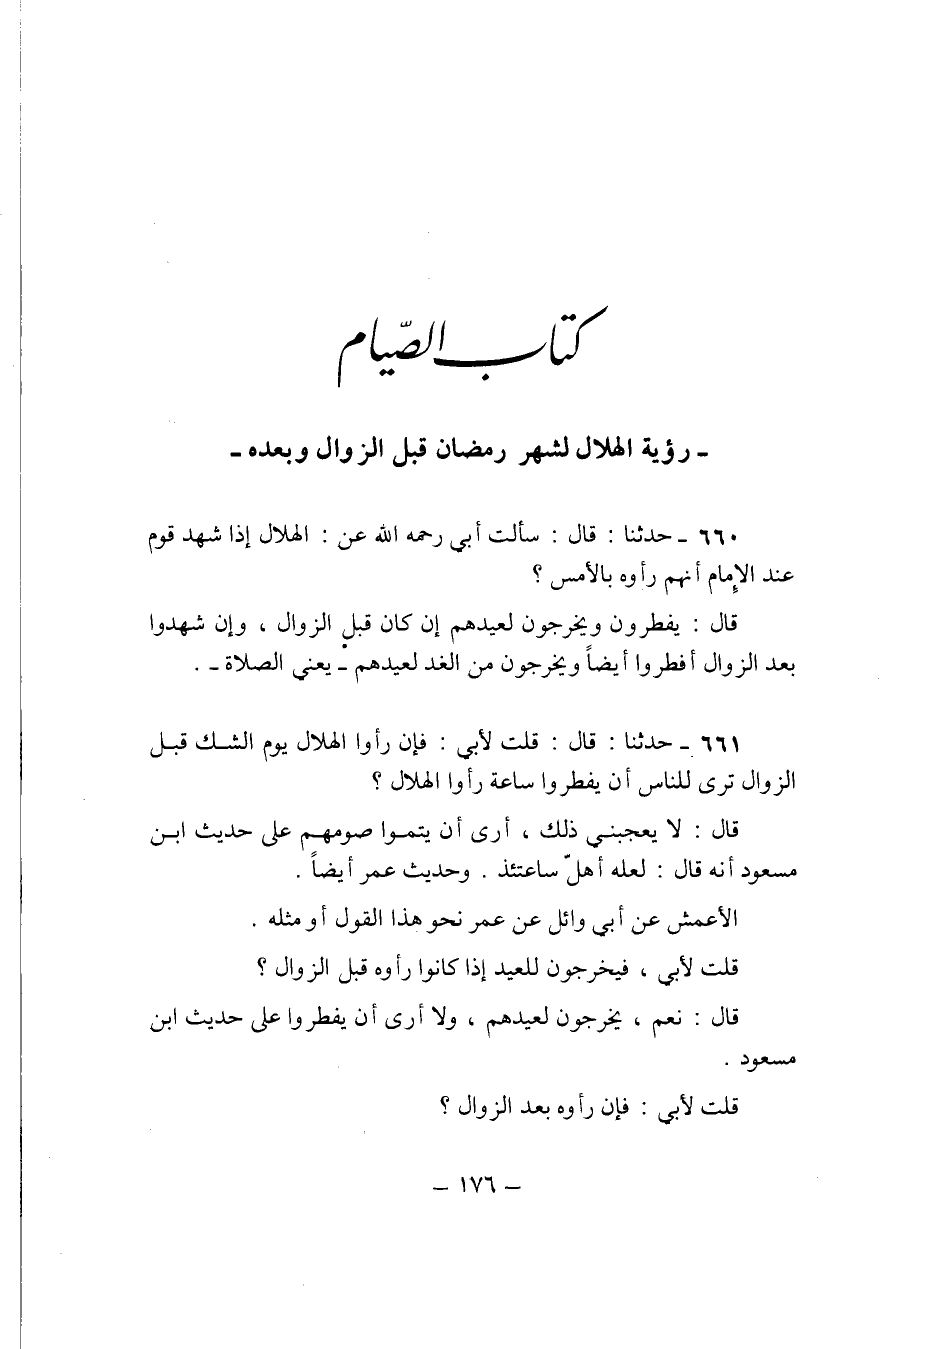 كتاب الصّيام
ـ رؤية الهلال لشهر رمضان قبل الزوال وبعده ـ
٦٦٠ ـ حدثنا : قال : سألت أبي رحمه الله عن : الهلال إذا شهد قوم
عند الإمام أنهم رأوه بالأمس ؟
قال : يفطرون ويخرجون لعيدهم إن كان قبل الزوال ، وإن شهدوا
بعد الزوال أفطروا أيضاً ويخرجون من الغد لعيدهم ـ يعني الصلاة ـ .
٦٦١ ـ حدثنا : قال : قلت لأبي : فإن رأوا الهلال يوم الشك قبل
الزوال ترى للناس أن يفطروا ساعة رأوا الهلال ؟
قال : لا يعجبني ذلك ، أرى أن يتموا صومهم على حديث ابن
مسعود أنه قال : لعله أهلّ ساعتئذ . وحديث عمر أيضاً .
الأعمش عن أبي وائل عن عمر نحو هذا القول أو مثله .
قلت لأبي ، فيخرجون للعيد إذا كانوا رأوه قبل الزوال ؟
قال : نعم ، يخرجون لعيدهم ، ولا أرى أن يفطروا على حديث ابن
مسعود .
قلت لأبي : فإن رأوه بعد الزوال ؟
ـ ١٧٦ ـ